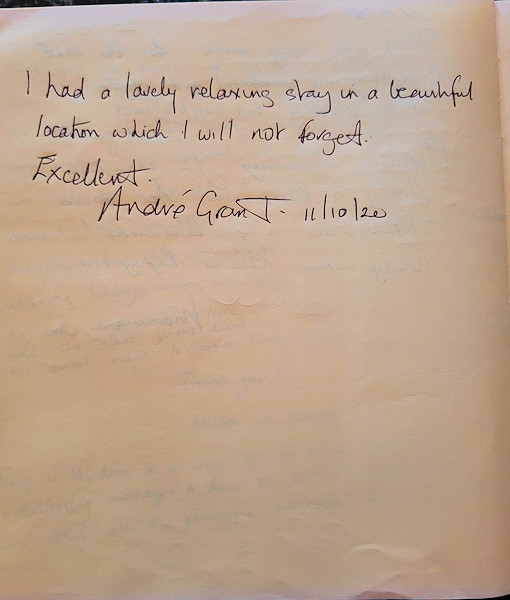 I had a lovely relaxing stay in a beautiful
location which I will not forget.
Excellent.
André Grant. 11/10/20